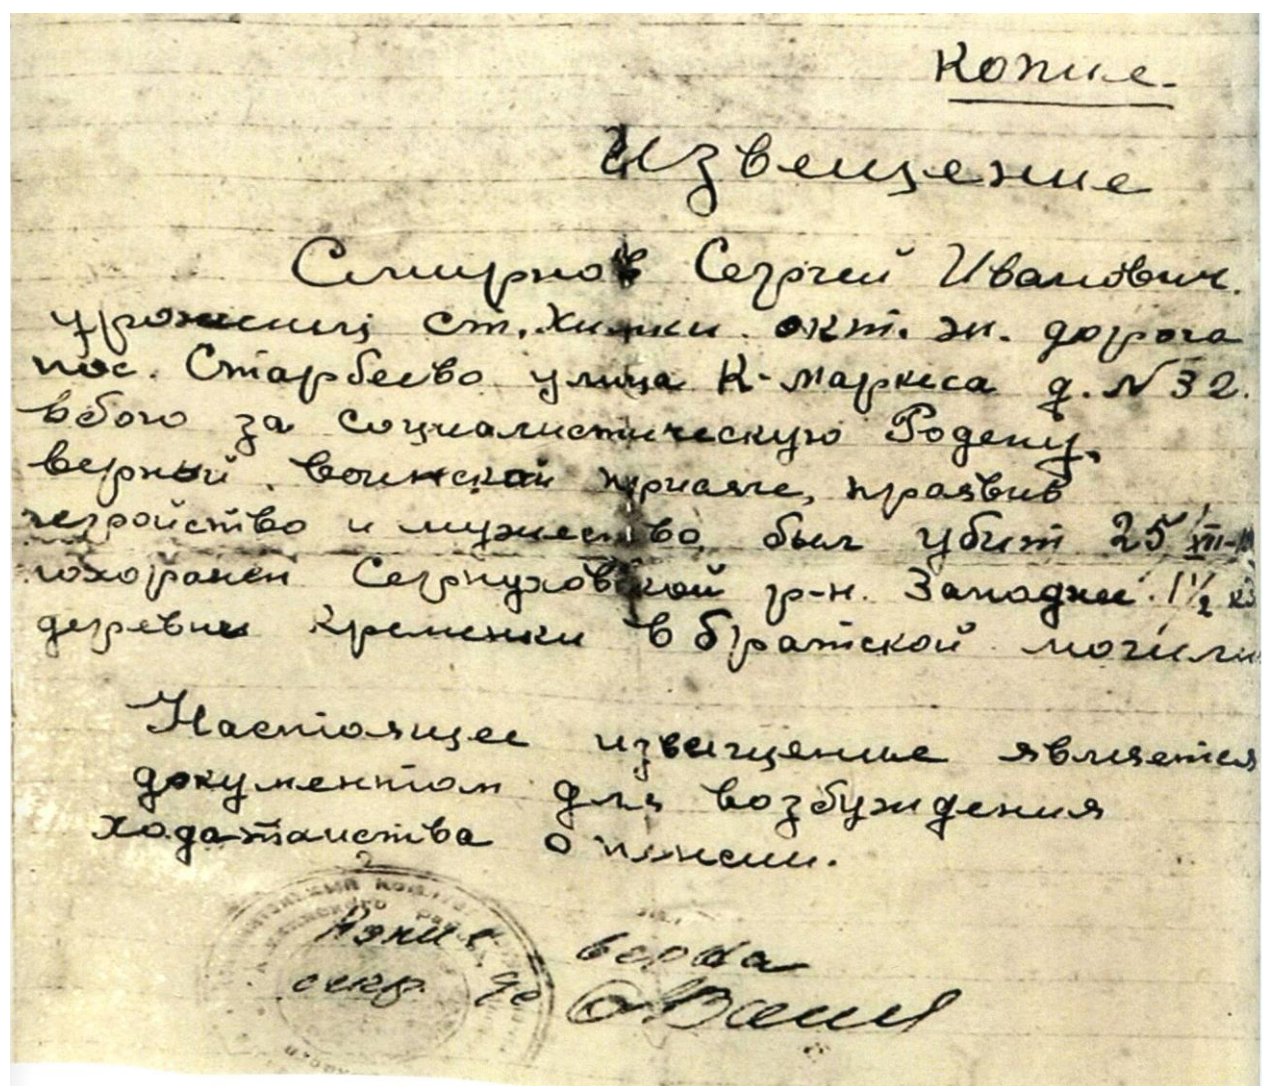 Копие.
Извещение
Смирнов Сергей Иванович.
уроженец ст. Химки окт. ж. дорога
пос. Старбеево улица К-маркса д. N 32.
вбою за социалистическую Родену,
верный воинской присяге, праявив
геройство и мужество, был убит 25/XII-
похоранен Серпуховской р-н. Западнее 1½ км
деревни Кременки в братской могили
Настоящее извещение является
документом для возбуждения
ходатаиства о пенсии.
Копие верна
секр.